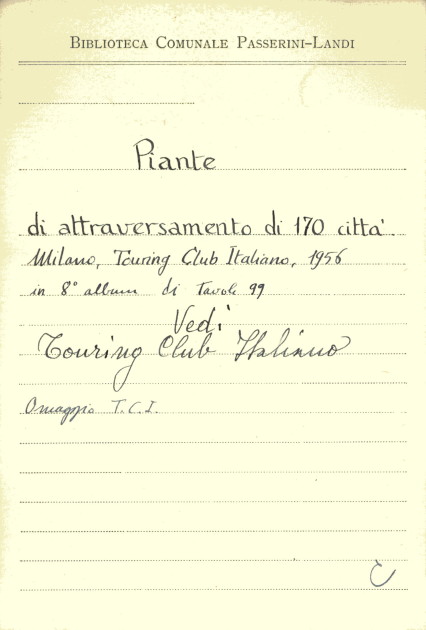 BIBLIOTECA COMUNALE PASSERINI-LANDI
Piante
di attraversamento di 170 città.
Milano, Touring Club Italiano, 1956
in 8° album di Tavole 99
Vedi
Touring Club Italiano
Omaggio T.C.I.